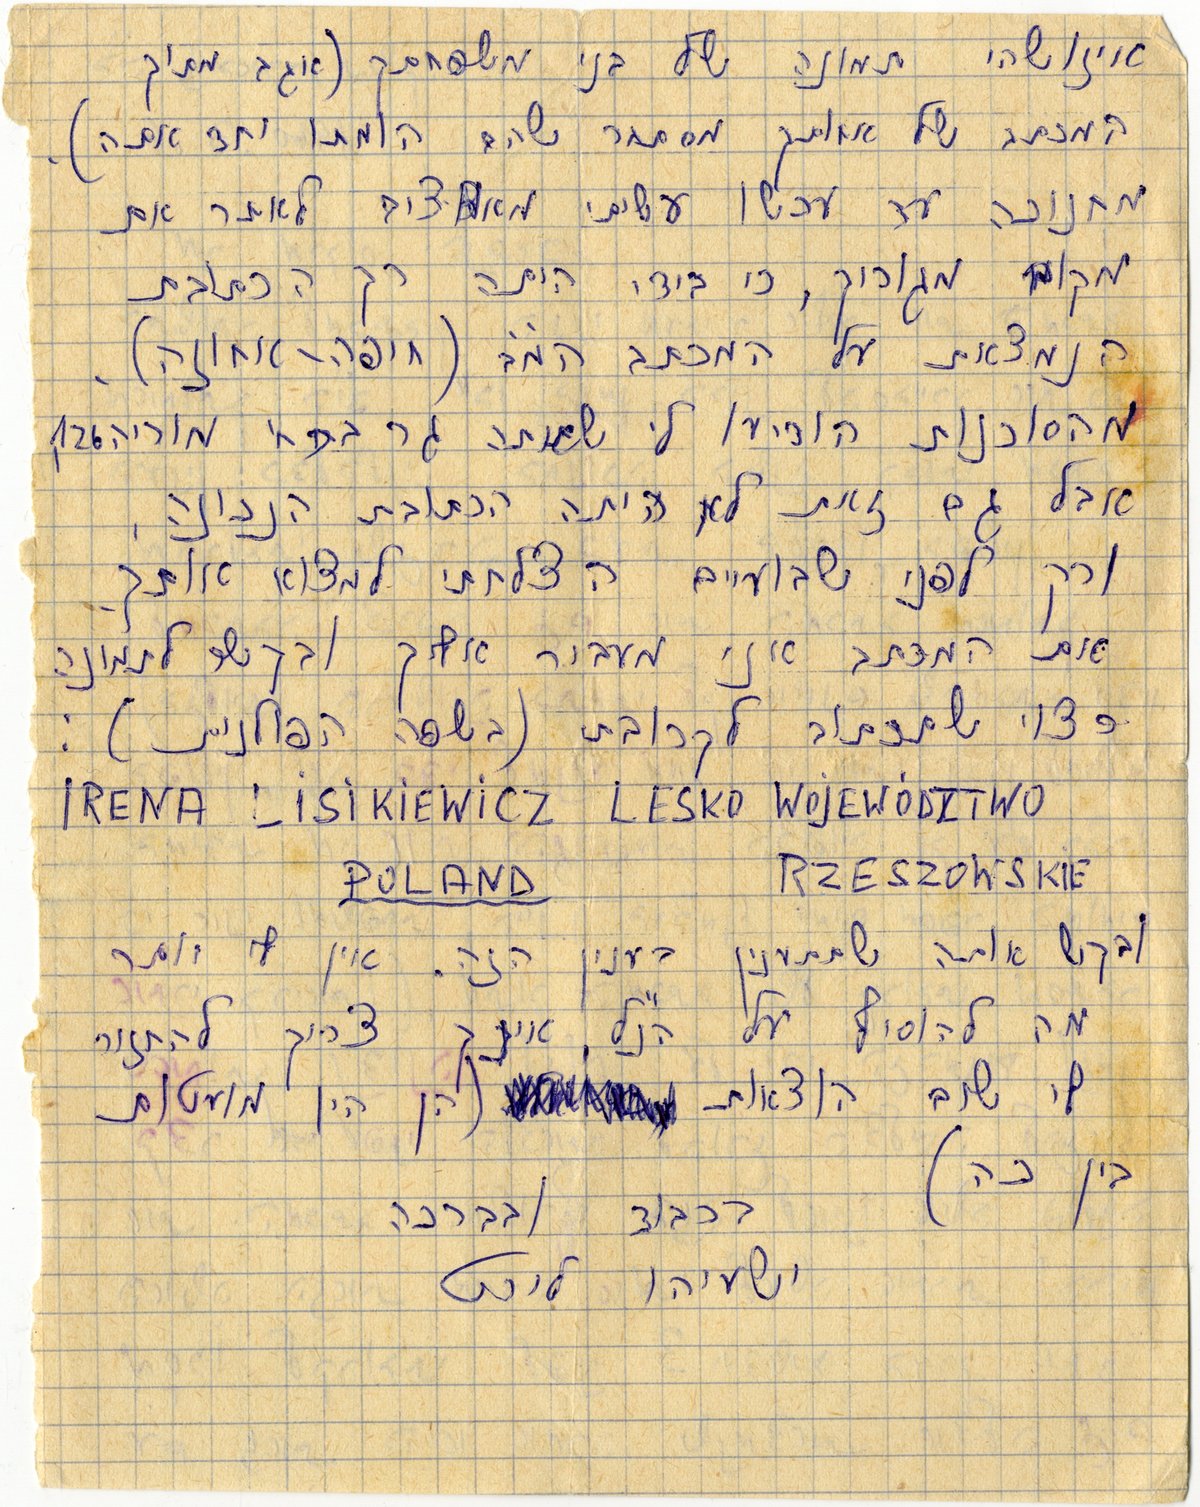 איזושהי תמונה של בני משפחתך (אגב מתוך
המכתב של אחותך מסתבר שהם הומתו יחד אתה).
מחנוכה עד עכשו עשיתי מאמצים לאתר את
מקום מגוריך, כי בידי היתה רק הכתובת
הנמצאת על המכתב המ"ב (חיפה-אחוזה).
מהסוכנות הודיעו לי שאתה גר בית מוריה 126
אבל גם זאת לא היתה הכתובת הנכונה,
ורק לפני שבועיים הצלחתי למצוא אותך.
את המכתב אני מעביר אליך ובקשר לתמונה
רצוי שתכתוב לקרובתי (בשפה הפולנית):
IRENA LISIKIEWICZ LESKO WOJEWÓDZTWO
POLAND RZESZOWSKIE
ובקש אותה שתתענין בענין הזה. אין לי יותר
מה להוסיף על הנ"ל, אינך צריך להחזיר
לי שום הוצאות (הן היו מועטות
בין כה)
בכבוד ובברכה
ישעיהו ליכט